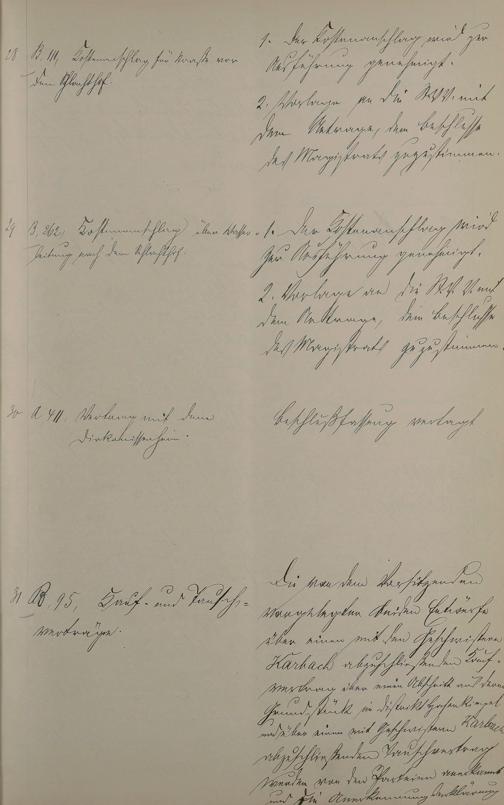 28 B. 111, Kostenanschlag für Straße vor
dem Schlachthof.
1. Der Kostenanschlag wird zur
Ausführung genehmigt.
2. Vorlage an die St.V.V. mit
dem Antrage, dem Beschlusse
des Magistrats zuzustimmen.
29 B. 362, Kostenanschlag über Wasser-
leitung nach dem Schlachthof.
1. Der Kostenanschlag wird
zur Ausführung genehmigt.
2. Vorlage an die St.V.V. mit
dem Antrage, dem Beschlusse
des Magistrats zuzustimmen.
30 A 411. Vertrag mit dem
Diakonissenheim.
Beschlußfassung vertagt
31 B. 95, Kauf- und Tausch-
verträge.
Die von dem Vorsitzenden
vorgelegten beiden Entwürfe
über einen mit den Geschwistern
Karbach abzuschließenden Kauf-
vertrag über einen Abschnitt aus deren
Grundstück im Distrikt
und über einen mit Geschwistern Karbach
abzuschließenden Tauschvertrag
werden von den Parteien anerkannt
und die Anerkennungserklärung